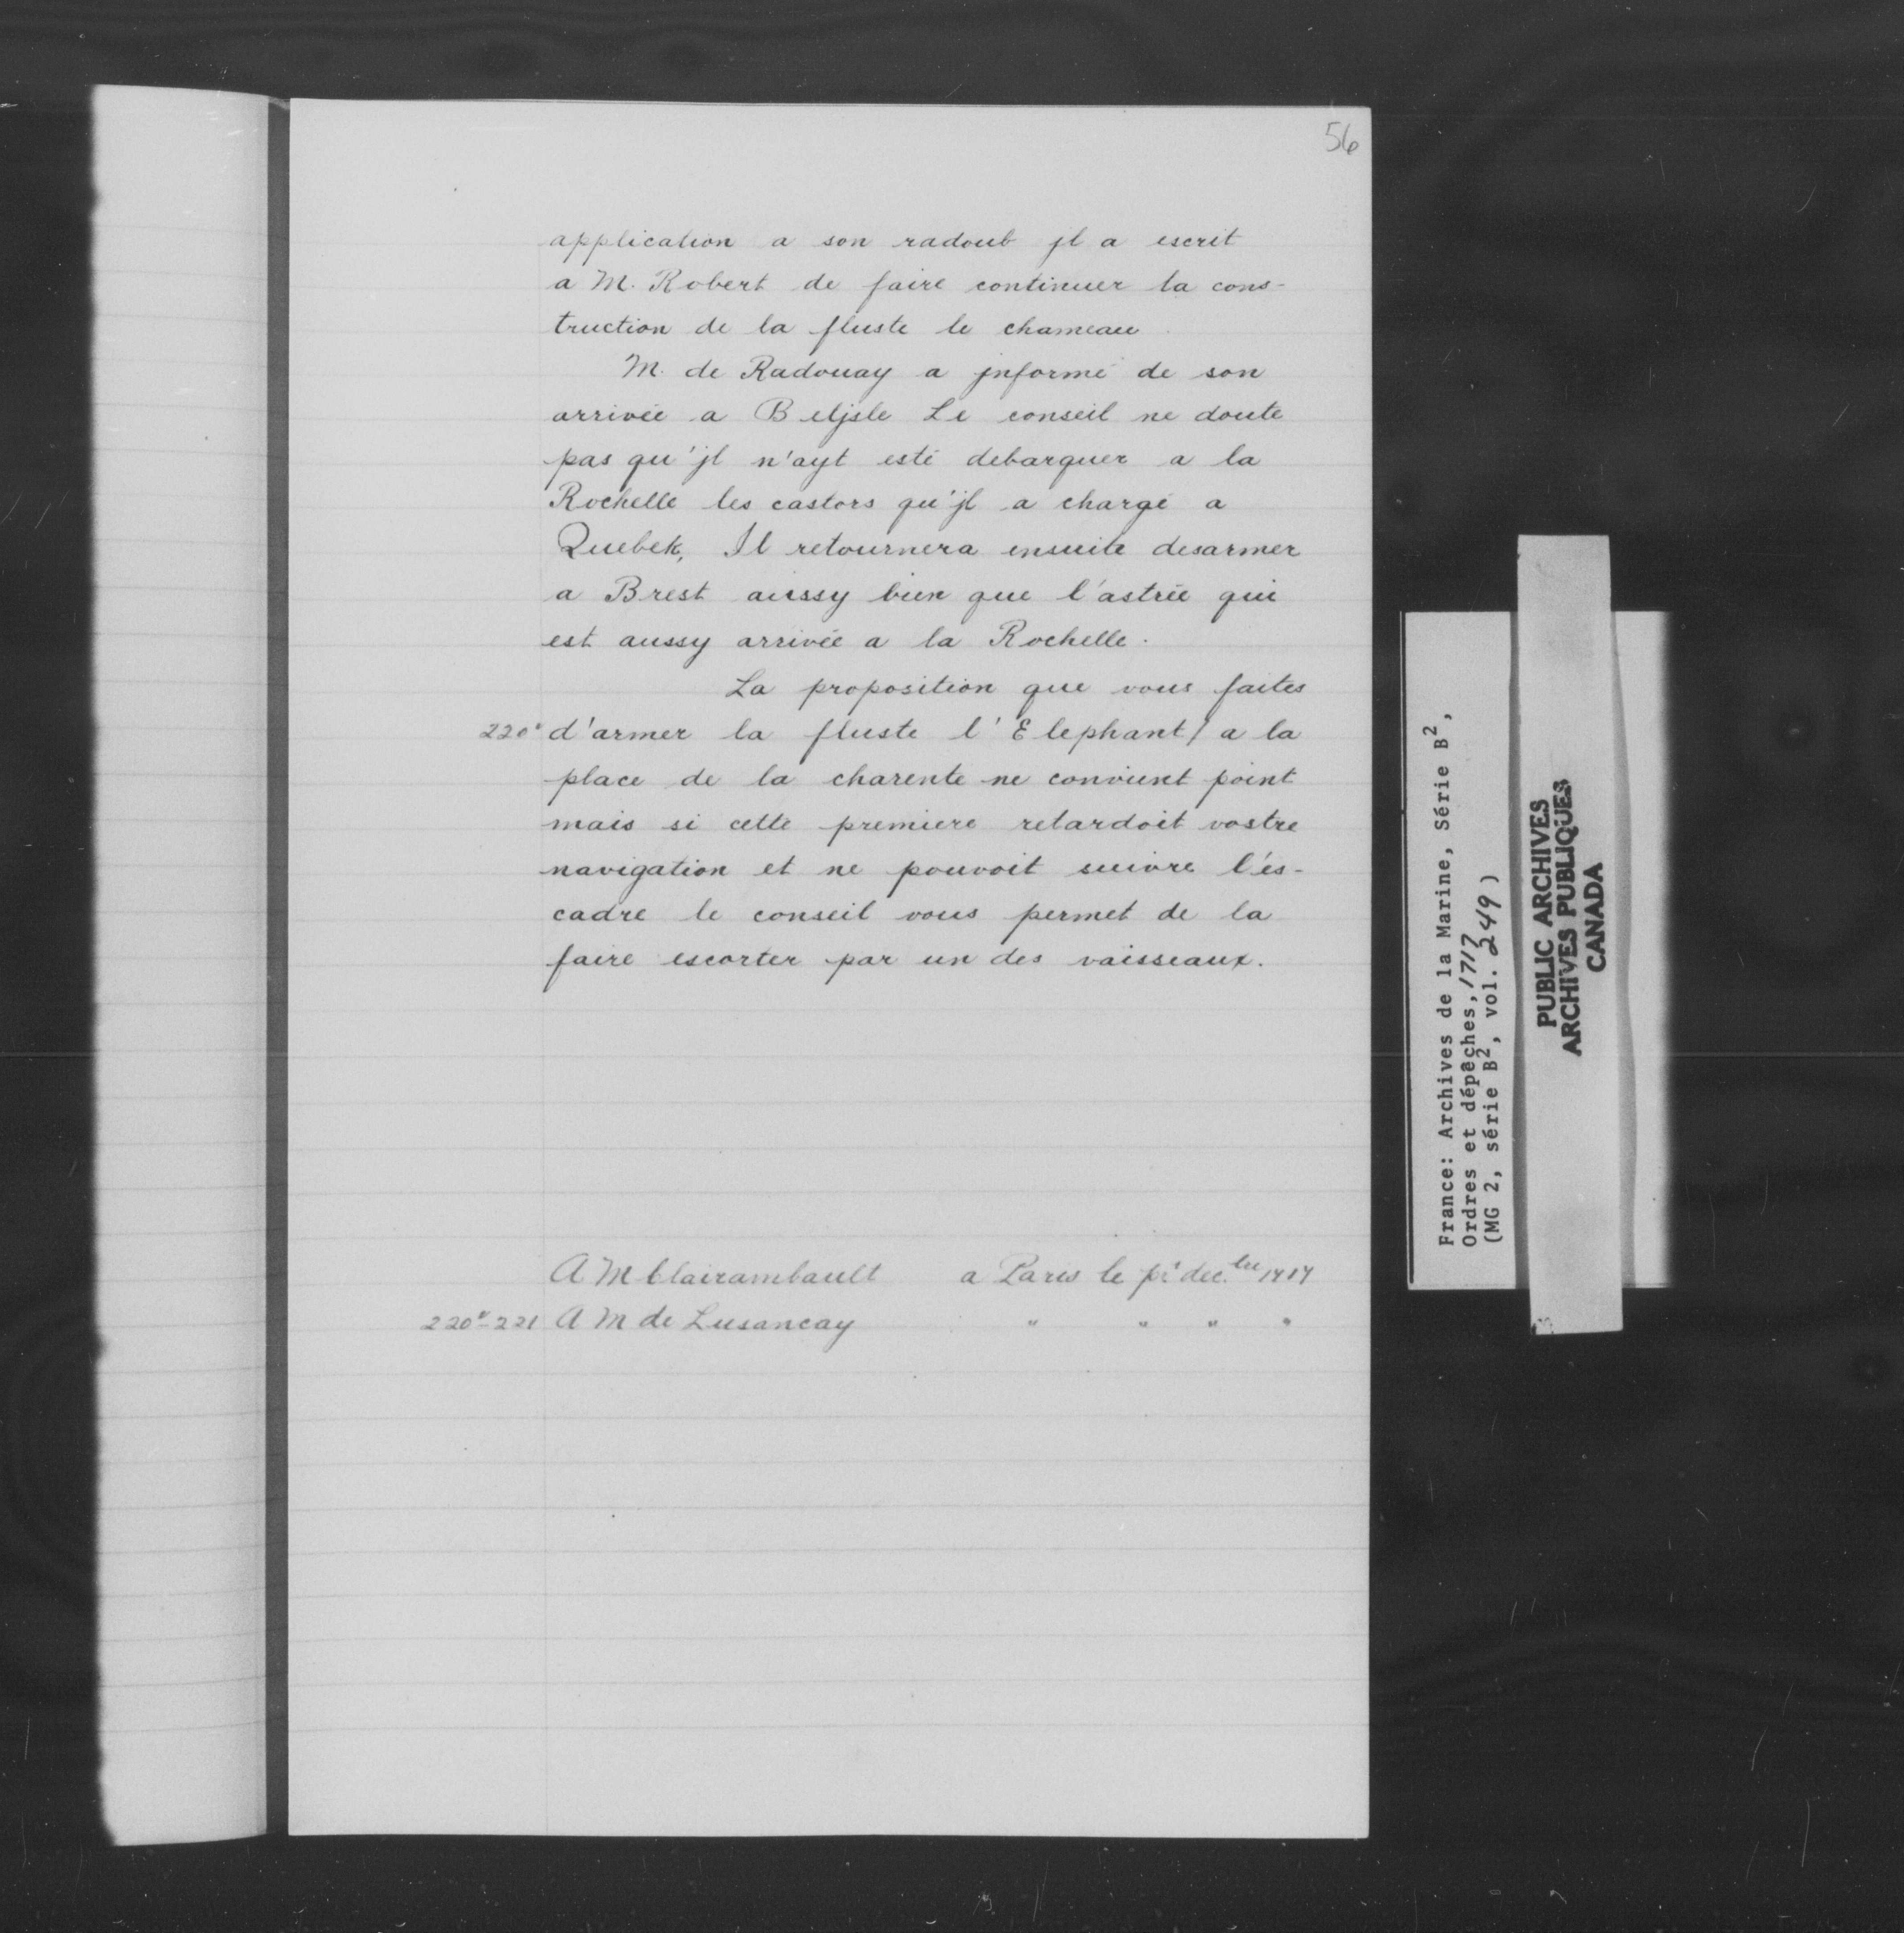 56
application a son radoub jl a escrit
a M. Robert de faire continuer la cons-
truction de la fluste le chameau
M. de Radouay a jnformé de son
arrivée a Beljsle Le conseil ne doute
pas qu'jl n'ayt esté debarquer a la
Rochelle les castors qu'jl a chargé a
Quebek, Il retournera ensuite desarmer
a Brest aussy bien que l'astrée qui
est aussy arrivée a la Rochelle.
La proposition que vous faites
220v d'armer la fluste l'Elephant/ a la
place de la charente ne convient point
mais si cette premiere retardoit vostre
navigation et ne pouvoit suivre l'es-
cadre le conseil vous permet de la
faire escorter par un des vaisseaux.
A M Clairambault a Paris le pr decbre 1717
220v-221 A M de Lusancay " " " "
France: Archives de la Marine, Série B2,
Ordres et dépêches, 1717
(MG 2, série B2, vol. 249)
PUBLIC ARCHIVES
ARCHIVES PUBLIQUES
CANADA